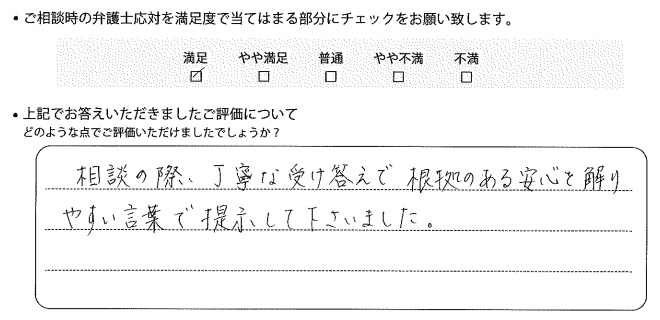 • ご相談時の弁護士応対を満足度で当てはまる部分にチェックをお願い致します。
満足 やや満足 普通 やや不満 不満
☑ □ □ □ □
• 上記でお答えいただきましたご評価について
どのような点でご評価いただけましたでしょうか？
相談の際、丁寧な受け答えで 根拠のある安心を解り
やすい言葉で提示して下さいました。